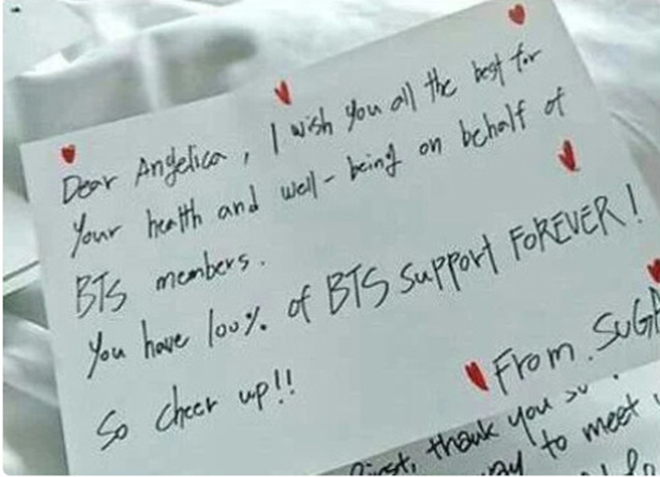 Dear Angelica, I wish you all the best for
your health and well-being on behalf of
BTS members.
You have 100% of BTS support FOREVER!
So cheer up!!
From. SUGA
First, thank you so
way to meet